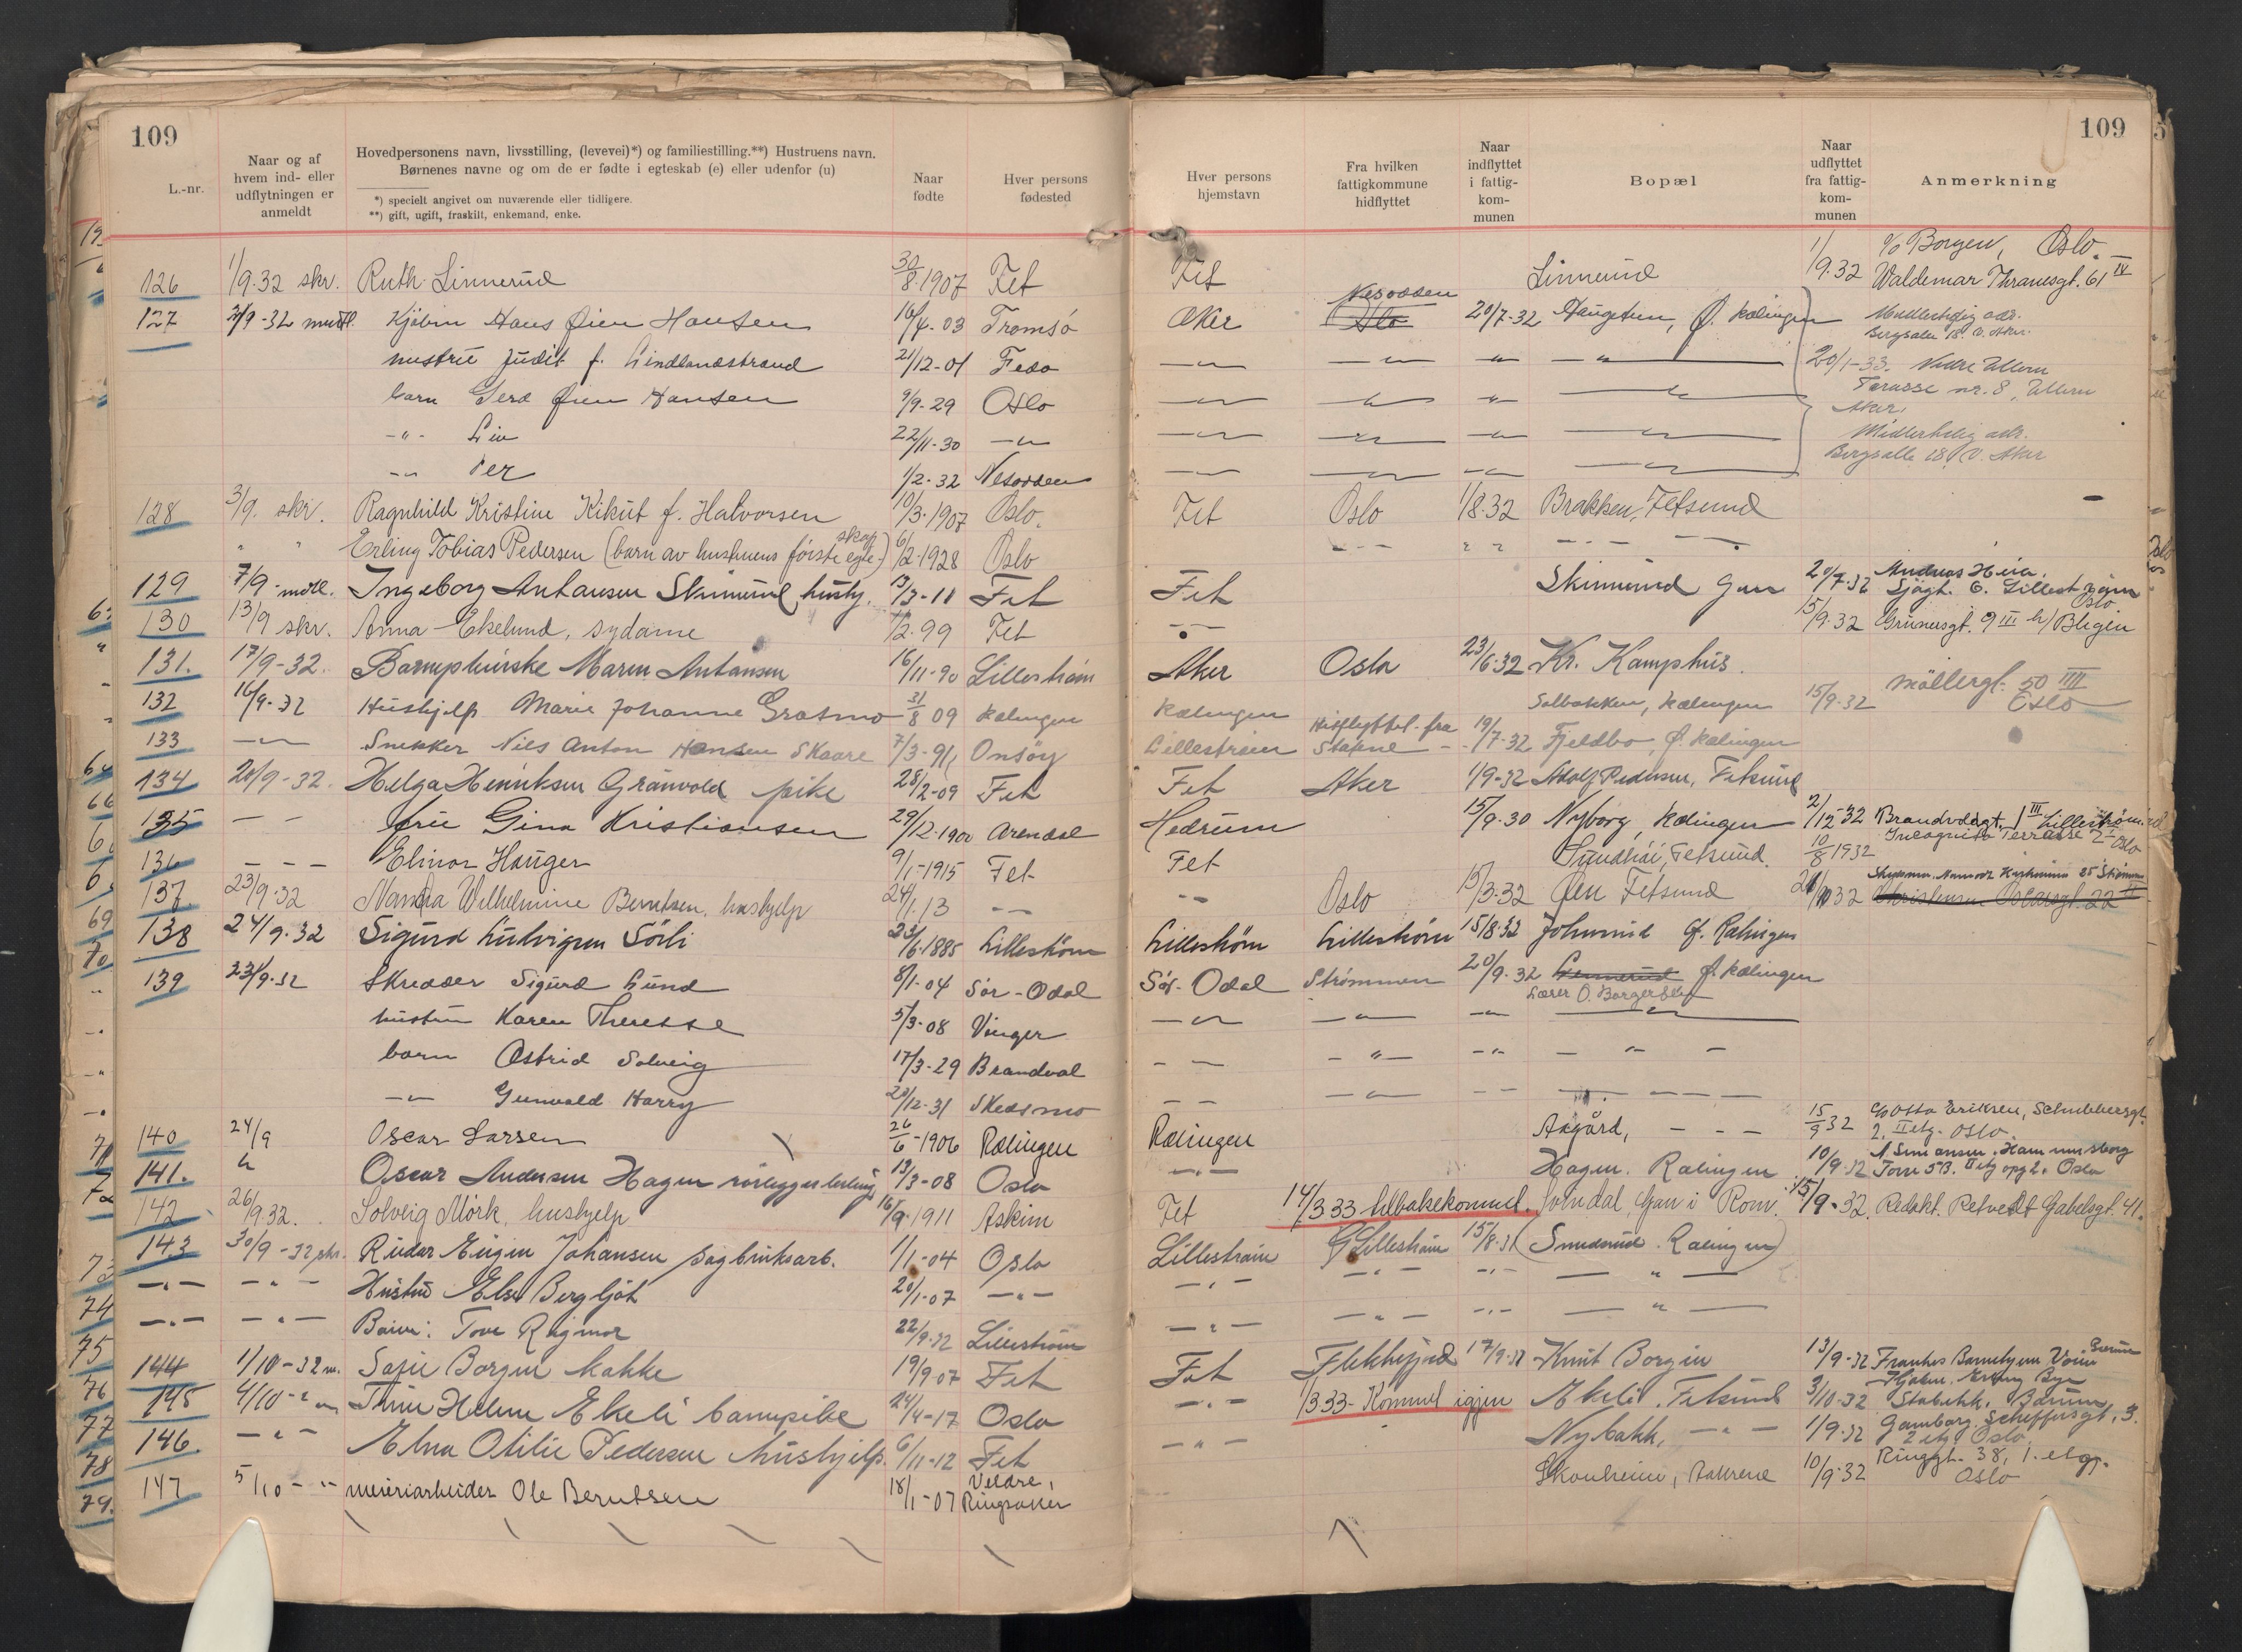 109
109
L.-nr.
Naar og af hvem ind- eller udflytningen er anmeldt
Hovedpersonens navn, livsstilling, (levevei)*) og familiestilling.**) Hustruens navn.
Børnenes navne og om de er fødte i egteskab (e) eller udenfor (u)
*) specielt angivet om nuværende eller tidligere.
**) gift, ugift, fraskilt, enkemand, enke.
Naar fødte
Hver persons fødested
Hver persons hjemstavn
Fra hvilken fattigkommune hidflyttet
Naar indflyttet i fattig-kom-munen
Bopæl
Naar udflyttet fra fattig-kom-munen
Anmerkning
126 1/9.32 skr. Ruth Linnerud 30/8.1907 Fet Fet Linnerud 1/9.32 c/o Borgen, Oslo. Waldemar Thranesgt. 61 IV
127 2/9-32 mudtl. Hans Øien Hansen 16/4-03 Tromsø Aker Nesodden Oslo 20/7-32 Haugetun, Ø. Rælingen Midlertidig adr. Bergsalle 18. V. Aker.
hustru Judit f. Lindlandstrand 21/12-01 Feda —"— —"— " —"— 20/1-33. Nedre Ullern
barn Gerd Øien Hansen 9/9-29 Oslo —"— —"— " —"— Terasse nr. 8, Ullern Aker.
-"- Liv 22/11-30 —"— —"— —"— —"— —"— Midlertidig adr.
-"- Per 1/2-32 Nesodden —"— —"— —"— —"— Bergsalle 18. V. Aker
128 3/9. skr. Ragnhild Kristine Kikut f. Halvorsen 10/3.1907 Oslo. Fet Oslo 1/8.32 Brakken, Fetsund —
" " Erling Tobias Pedersen (barn av hustruens første egteskap) 6/2-1928 Oslo - - - " " - - - -
129 7/9 - mdl. Ingeborg Antonsen Skinnerud, hush. 13/3-11 Fet Fet Skinnerud Gan 20/7-32 Andreas Heia, Sjøgt. 6. Lillestrøm
130 13/9 skr. Anna Ekelund, sydame 1/2.99 Fet —"— 15/9.32 Grünersgt. 9 III h/ Bligen Oslo
131. 17/9-32. Barnepleierske Maren Antonsen 16/11-90 Lillestrøm Aker Oslo 23/6.32 Kr. Kamphus.
132 16/9-32 Hushjelp Marie Johanne Grasmo 31/8 09 Rælingen Rælingen Solbakken, Rælingen 15/9.32 Møllergt. 50 IIII Oslo
133 —"— Snekker Nils Anton Hansen Skaare 7/3-91 Onsøy Lillestrøm Hidflyttet fra 19/7-32 Fjeldbo, Ø. Rælingen
134 20/9-32. Helga Henriksen Grønvold pike 28/2-09 Fet Fet Aker 1/9-32 Adolf Pedersen, Fetsund
135 — — fru Gina Kristiansen 29/12.1900 Arendal Hedrum 15/9.30 Nyborg, Rælingen 2/12-32 Brandvoldgt. 1 III Lillestrøm
136 — — — Elinor Hauger 9/1-1915 Fet Fet Sundhöi, Fetsund. 10/8 1932 Incognito Terrasse 2 I Oslo
137. 23/9.32 Nanda Wilhelmine Berntsen, hushjelp 24/1.13 — — -"- Oslo 15/3-32 Øen Fetsund
138 24/9.32 Sigurd Ludvigsen Sørli 23/6.1885 Lillestrøm Lillestrøm Lillestrøm 15/8.32 Johnsrud Ø. Rælingen
139 23/9.32 Skredder Sigurd Lund 8/1-04 Sør-Odal Sør-Odal Strømmen 20/9.32 Ø. Rælingen Lærer O. Borgersen
hustru Karen Theresse 5/3-08 Vinger —"— —"— —"— —"—
barn Astrid Solveig 17/3-29 Brandval — — —"— —"— — " —
—"— Gunvald Harry 20/12-31 Skedsmo — — —"— — — — — — —
140 24/9 Oscar Larsen 26/6-1906 Rælingen Rælingen Åsgård, — - — 15/9 32 c/o Otto Eriksen, Schubbersgt. 2. II etg. Oslo.
141. " Oscar Andersen Hagen rørleggerlærling 13/3-08 Oslo —"— Hagen. Rælingen 10/9.32 Hammersborg Torv 5B. II etg opg 2. Oslo
142. 26/9.32. Solveig Mörk, hushjelp 16/9.1911 Askim Fet 14/3 33 tilbakekommet. Gan i Rom. 15/9-32. Redakt. Retvedt Gabelsgt. 41.
143 30/9-32 skr. Reidar Eugen Johansen sagbruksarb. 1/1-04 Oslo Lillestrøm Lillestrøm 15/8.31 (Smedsrud. Rælingen)
—"— —"— Hustru Else Bergljot 20/1-07 —"— —"— —"— —"— — " —
—"— —"— Barn: Tove Rigmor 22/9.32 Lillestrøm —"— —"— —"— — " —
144 1/10-32 m. Sofie Borgen kokke 19/9.07 Fet Fet Flekkefjord 17/9.32 Knut Borgen 13/9-32 Frankes Barnehjem
145 4/10 - " m Trine Helene Ekeli barnepike 24/4-17 Oslo —"— 1/3 33 - Kommet igjen Ekeli. Fetsund 3/10-32 Stabekk, Bærum
146. —"— Elna Otilie Pedersen hushjelp. 6/11-12 Fet —"— Nybakk, —"— 1/9.32 Gamborg, Scheffersgt. 3. 2 etg. Oslo
147 5/10 - "- meieriarbeider Ole Berntsen 18/1-07 Veldre, Ringsaker Skonheim, 10/9.32 Ringgt. 38, 1. etg. Oslo